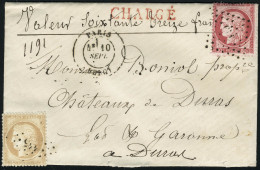 CHARGÉ
Valeur Soixante Treize fra
1191
PARIS
10
SEPT
Monsieur Boniol prop.
Châteaux de Duras
Lot & Garonne
a Duras